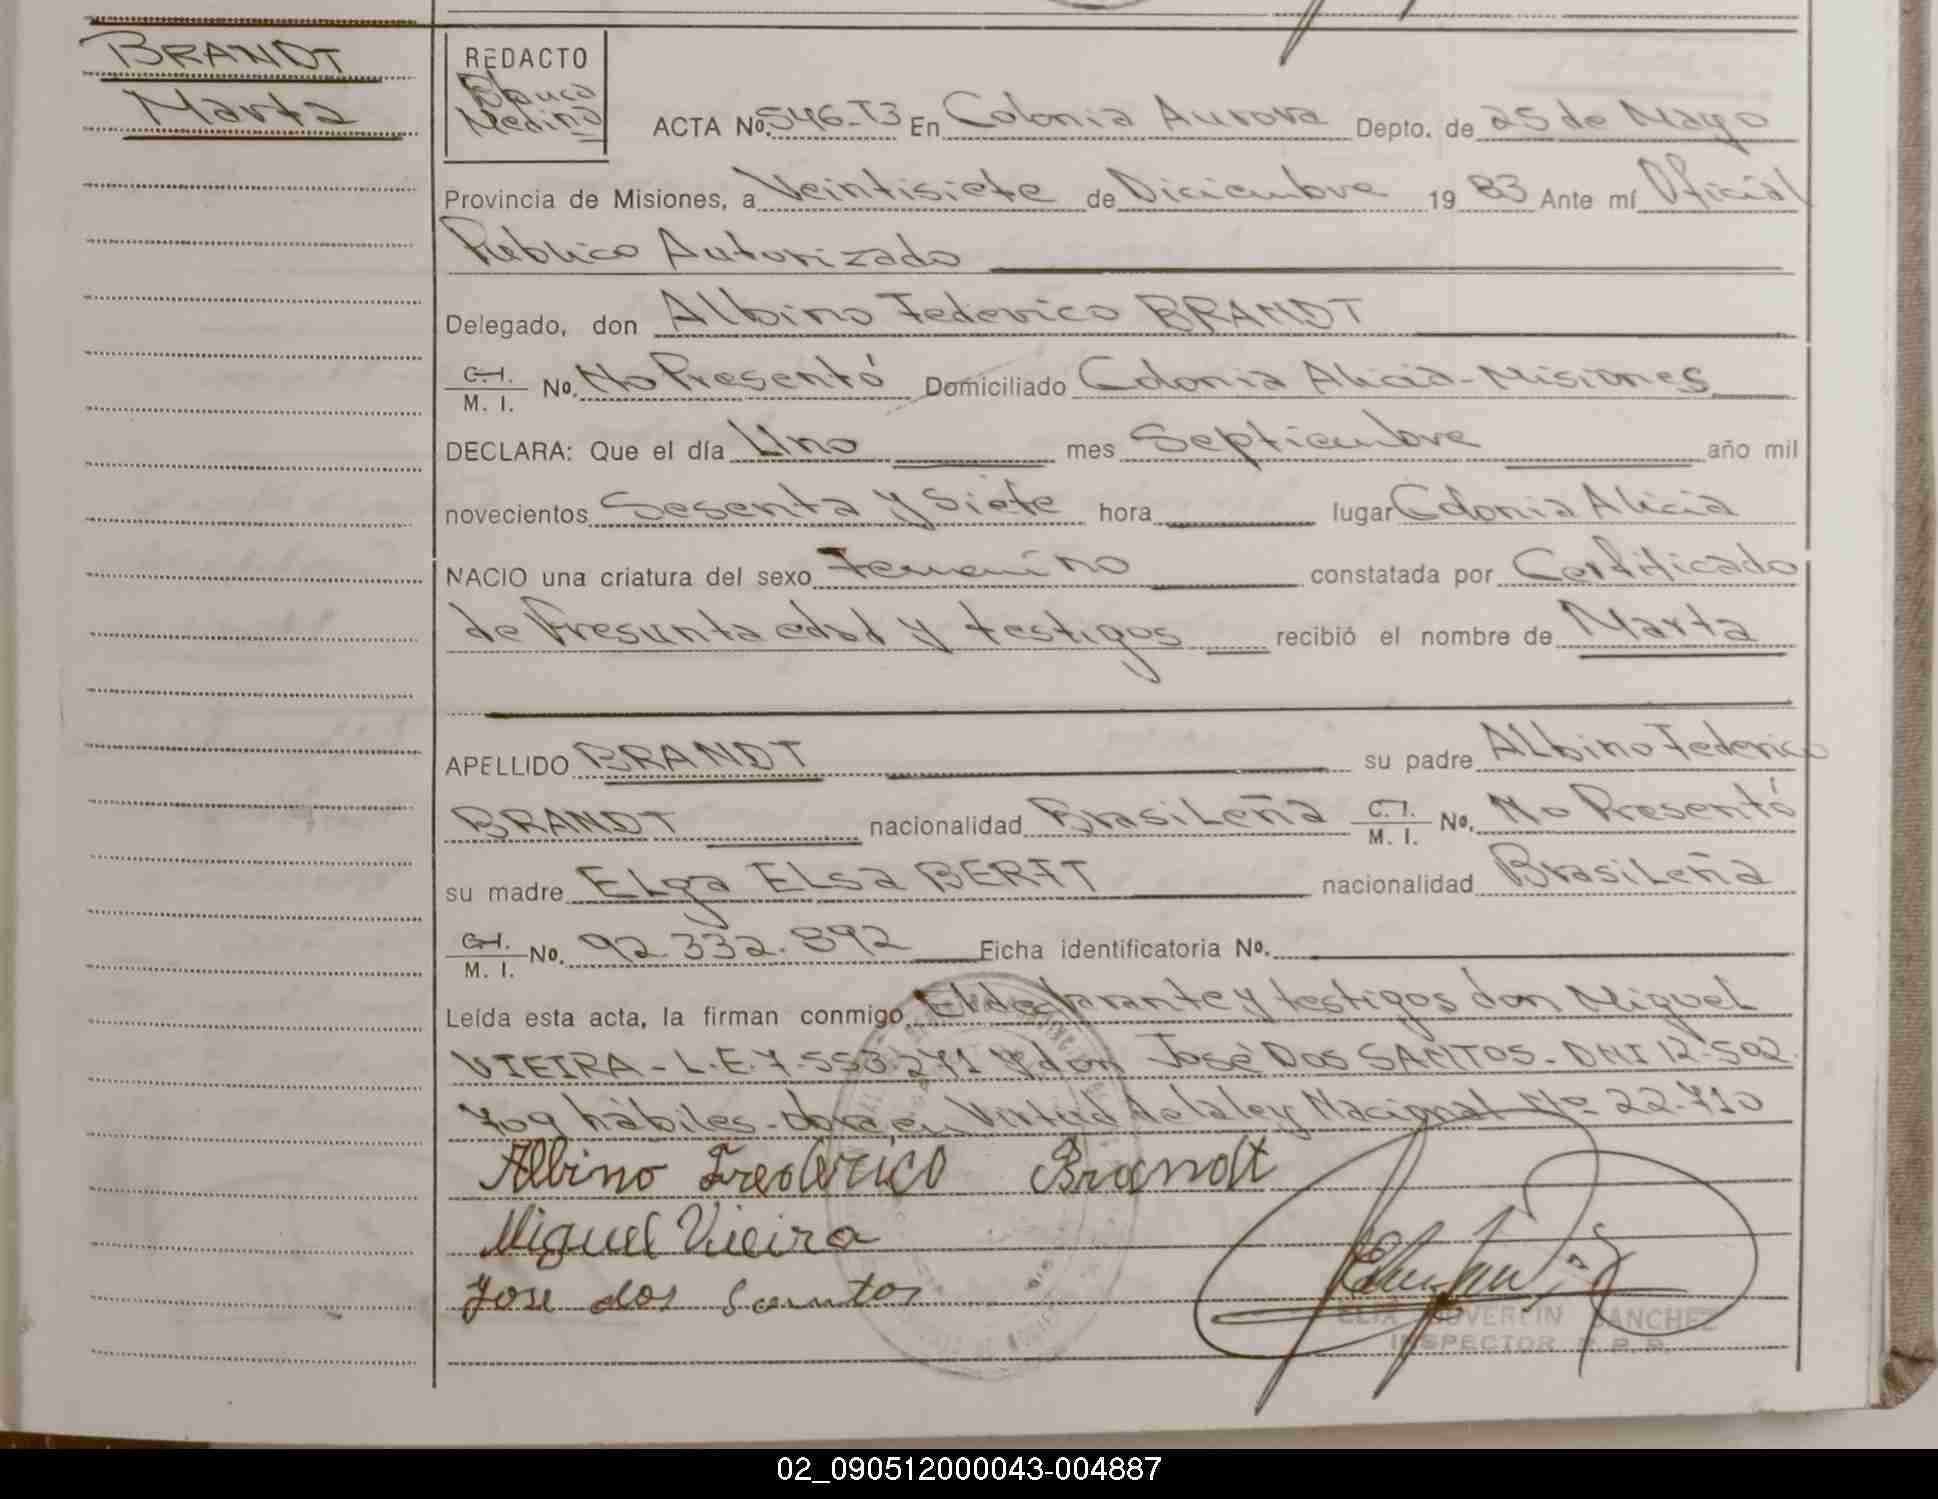 BRANDT
Marta
REDACTO
Blanca
Medina
ACTA No. 546-T3 En Colonia Aurora Depto. de 25 de Mayo
Provincia de Misiones, a Veintisiete de Diciembre 19 83 Ante mí Oficial
Público Autorizado
Delegado, don Albino Federico BRANDT
C.I. M. I. No. No Presentó Domiciliado Colonia Alicia - Misiones
DECLARA: Que el día Uno mes Septiembre año mil
novecientos Sesenta y Siete hora lugar Colonia Alicia
NACIO una criatura del sexo Femenino constatada por Certificado
de Presunta edad y testigos recibió el nombre de Marta
APELLIDO BRANDT su padre Albino Federico
BRANDT nacionalidad Brasileña C.I. M. I. No. No Presentó
su madre Elga Elsa BERFT nacionalidad Brasileña
C.I. M. I. No. 92.332.892 Ficha identificatoria No.
Leída esta acta, la firman conmigo El declarante y testigos don Miguel
VIEIRA - L.E. 7.553.271 y don José Dos SANTOS - DNI 12.502.
709 hábiles - en Virtud de la ley Nacional No 22.710
Albino Frederico Brandt
Miguel Vieira
Jose dos Santos
SANCHEZ
INSPECTOR R.P.P.
02_090512000043-004887